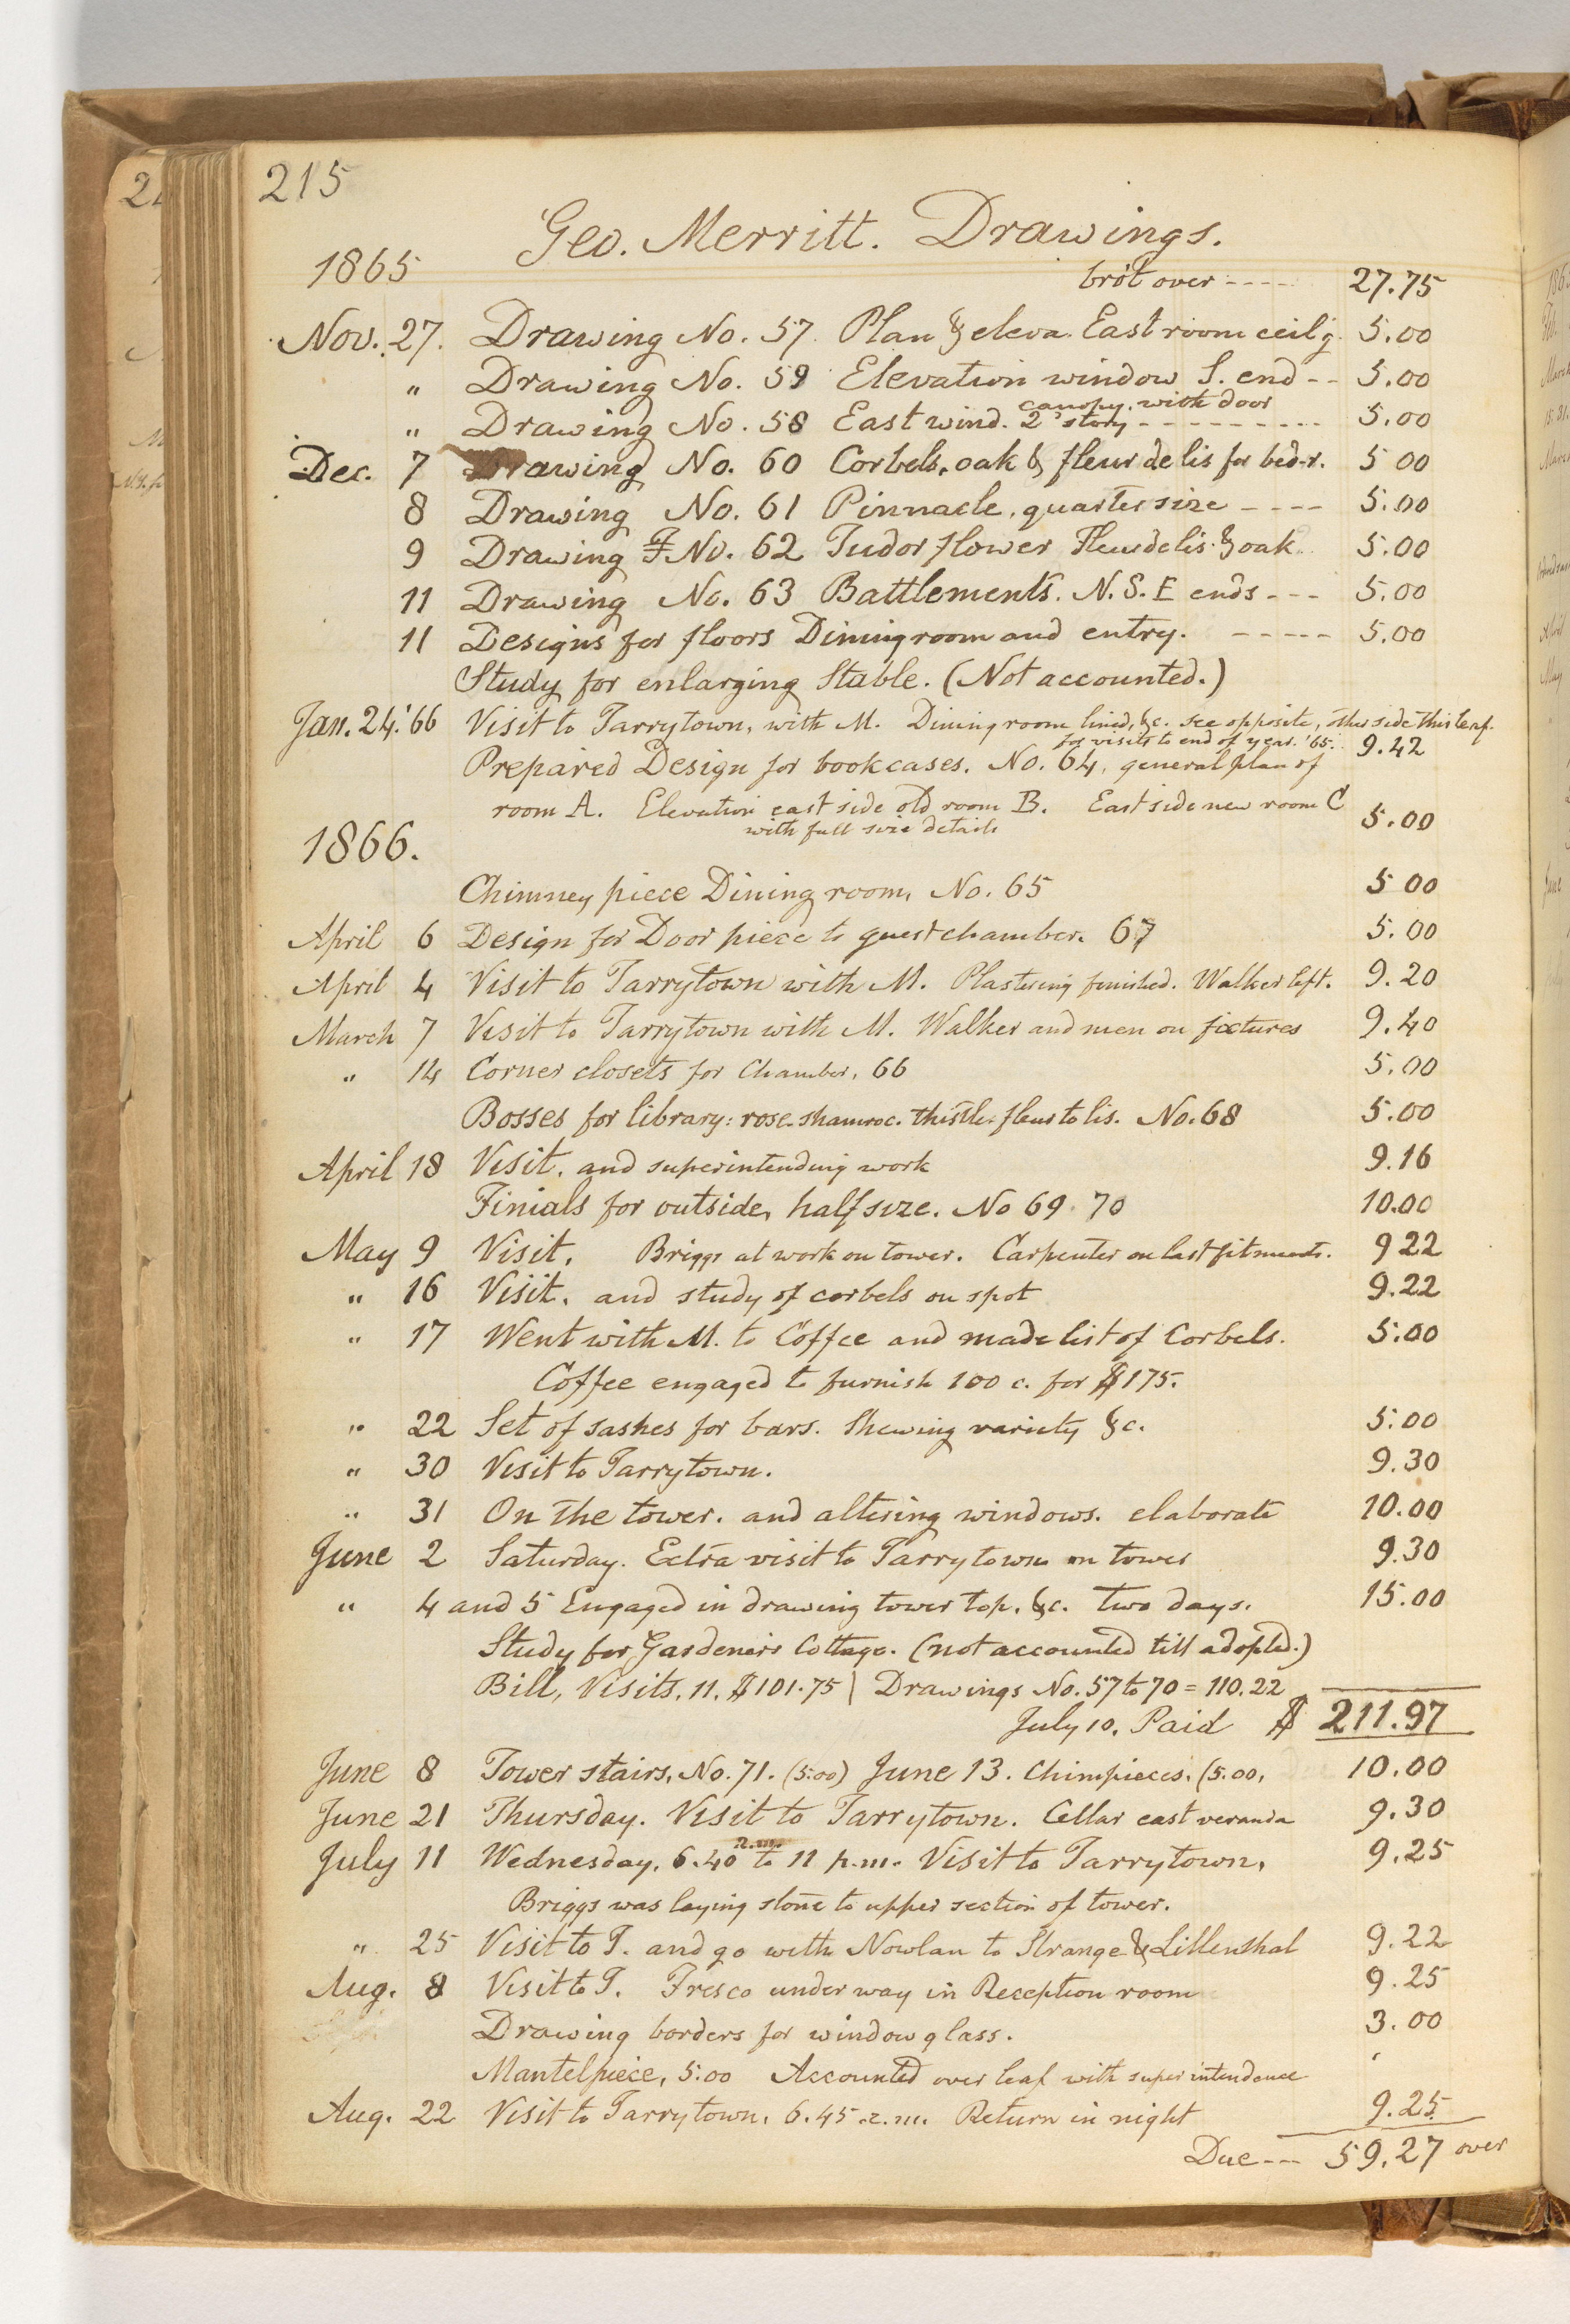 215
Geo. Merritt. Drawings.
1865 bro't over ---- 27.75
Nov. 27. Drawing No. 57. Plan & eleva. East room ceil'g. 5.00
" Drawing No. 59 Elevation window S. end -- 5.00
canopy, with door
" Drawing No. 58 East wind. 2 story --------- 5.00
Dec. 7 Drawing No. 60 Corbels, oak & fleur de lis for bed-r. 5 00
8 Drawing No. 61 Pinnacle, quarter size ---- 5.00
9 Drawing No. 62 Tudor flower Fleur de lis & oak 5.00
11 Drawing No. 63 Battlements. N. S. E ends --- 5.00
11 Designs for floors Dining room and entry. ----- 5.00
Study for enlarging Stable. (Not accounted.)
Jan. 24. '66 Visit to Tarrytown, with M. Dining room lined, &c. see opposite, other side this leaf.
for visits to end of year. '65. 9.42
Prepared Design for bookcases. No. 64, general plan of
room A. Elevation east side old room B. East side new room C
with full size details 5.00
1866.
Chimney piece Dining room, No. 65 5 00
April 6 Design for Door piece to guest chamber. 67 5.00
April 4 Visit to Tarrytown with M. Plastering finished. Walker left. 9.20
March 7 Visit to Tarrytown with M. Walker and men on fixtures 9.40
" 14 Corner closets for Chamber, 66 5.00
Bosses for library: rose. shamroc. thistle. fleur to lis. No. 68 5.00
April 18 Visit, and superintending work 9.16
Finials for outside, half size. No 69. 70 10.00
May 9 Visit, Briggs at work on tower. Carpenter on last fitments. 9 22
" 16 Visit, and study of corbels on spot 9.22
" 17 Went with M. to Coffee and made list of Corbels. 5.00
Coffee engaged to furnish 100 c. for $175.
" 22 Set of sashes for bars. Shewing variety &c. 5.00
" 30 Visit to Tarrytown. 9.30
" 31 On the tower. and altering windows. elaborate 10.00
June 2 Saturday. Extra visit to Tarrytown on tower 9.30
" 4 and 5 Engaged in drawing tower top, &c. two days. 15.00
Study for Gardener's Cottage. (not accounted till adopted.)
Bill, Visits, 11, $101.75 | Drawings No. 57 to 70 = 110.22
July 10. Paid $ 211.97
June 8 Tower stairs, No. 71. (5.00) June 13. Chimpieces. (5.00, 10.00
June 21 Thursday. Visit to Tarrytown. Cellar east veranda 9.30
a.m.
July 11 Wednesday, 6.40 to 11 p.m. Visit to Tarrytown, 9.25
Briggs was laying stone to upper section of tower.
" 25 Visit to T. and go with Nowlan to Strange & Lillenthal 9.22
Aug. 8 Visit to T. Fresco under way in Reception room 9.25
Drawing borders for window glass. 3.00
Mantelpiece, 5.00 Accounted over leaf with superintendence
Aug. 22 Visit to Tarrytown, 6.45 a.m. Return in night 9.25
Due --- 59.27 over